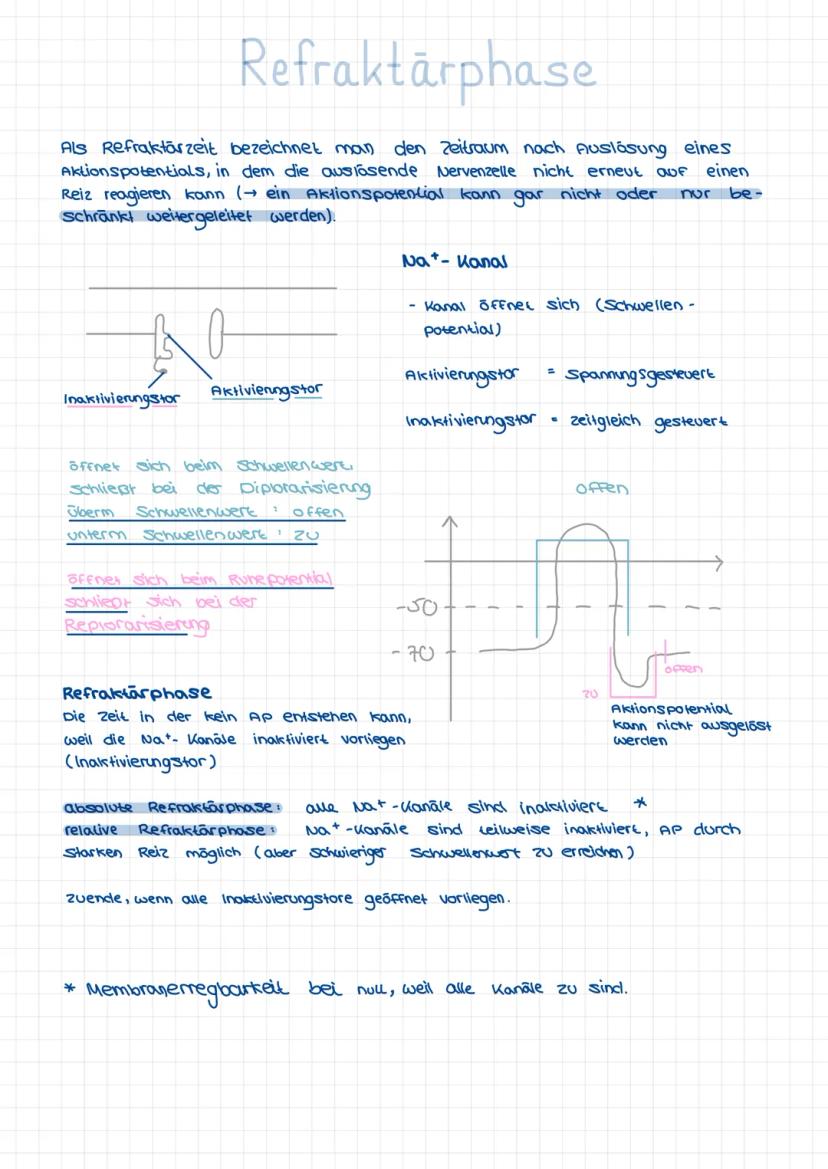 Refraktärphase
Als Refraktärzeit bezeichnet man den Zeitraum nach Auslösung eines
Aktionspotentials, in dem die auslösende Nervenzelle nicht erneut auf einen
Reiz reagieren kann (→ ein Aktionspotential kann gar nicht oder nur be-
schränkt weitergeleitet werden).
Na⁺- Kanal
- Kanal öffnet sich (Schwellen-
potential)
Aktivierungstor = Spannungsgesteuert
Inaktivierungstor = zeitgleich gesteuert
Inaktivierungstor
Aktivierungstor
öffnet sich beim Schwellenwert,
schließt bei der Diplorarisierung
überm Schwellenwert : offen
unterm Schwellenwert : zu
öffnet sich beim Ruhepotential
schließt sich bei der
Replorarisierung
offen
-50
-70
offen
zu
Aktionspotential
kann nicht ausgelöst
werden
Refraktärphase
Die Zeit in der kein AP entstehen kann,
weil die Na⁺- Kanäle inaktiviert vorliegen
(Inaktivierungstor)
absolute Refraktärphase: alle Na⁺-Kanäle sind inaktiviert *
relative Refraktärphase: Na⁺-Kanäle sind teilweise inaktiviert, AP durch
starken Reiz möglich (aber schwieriger Schwellenwert zu erreichen)
zuende, wenn alle Inaktivierungstore geöffnet vorliegen.
* Membranerregbarkeit bei null, weil alle Kanäle zu sind.